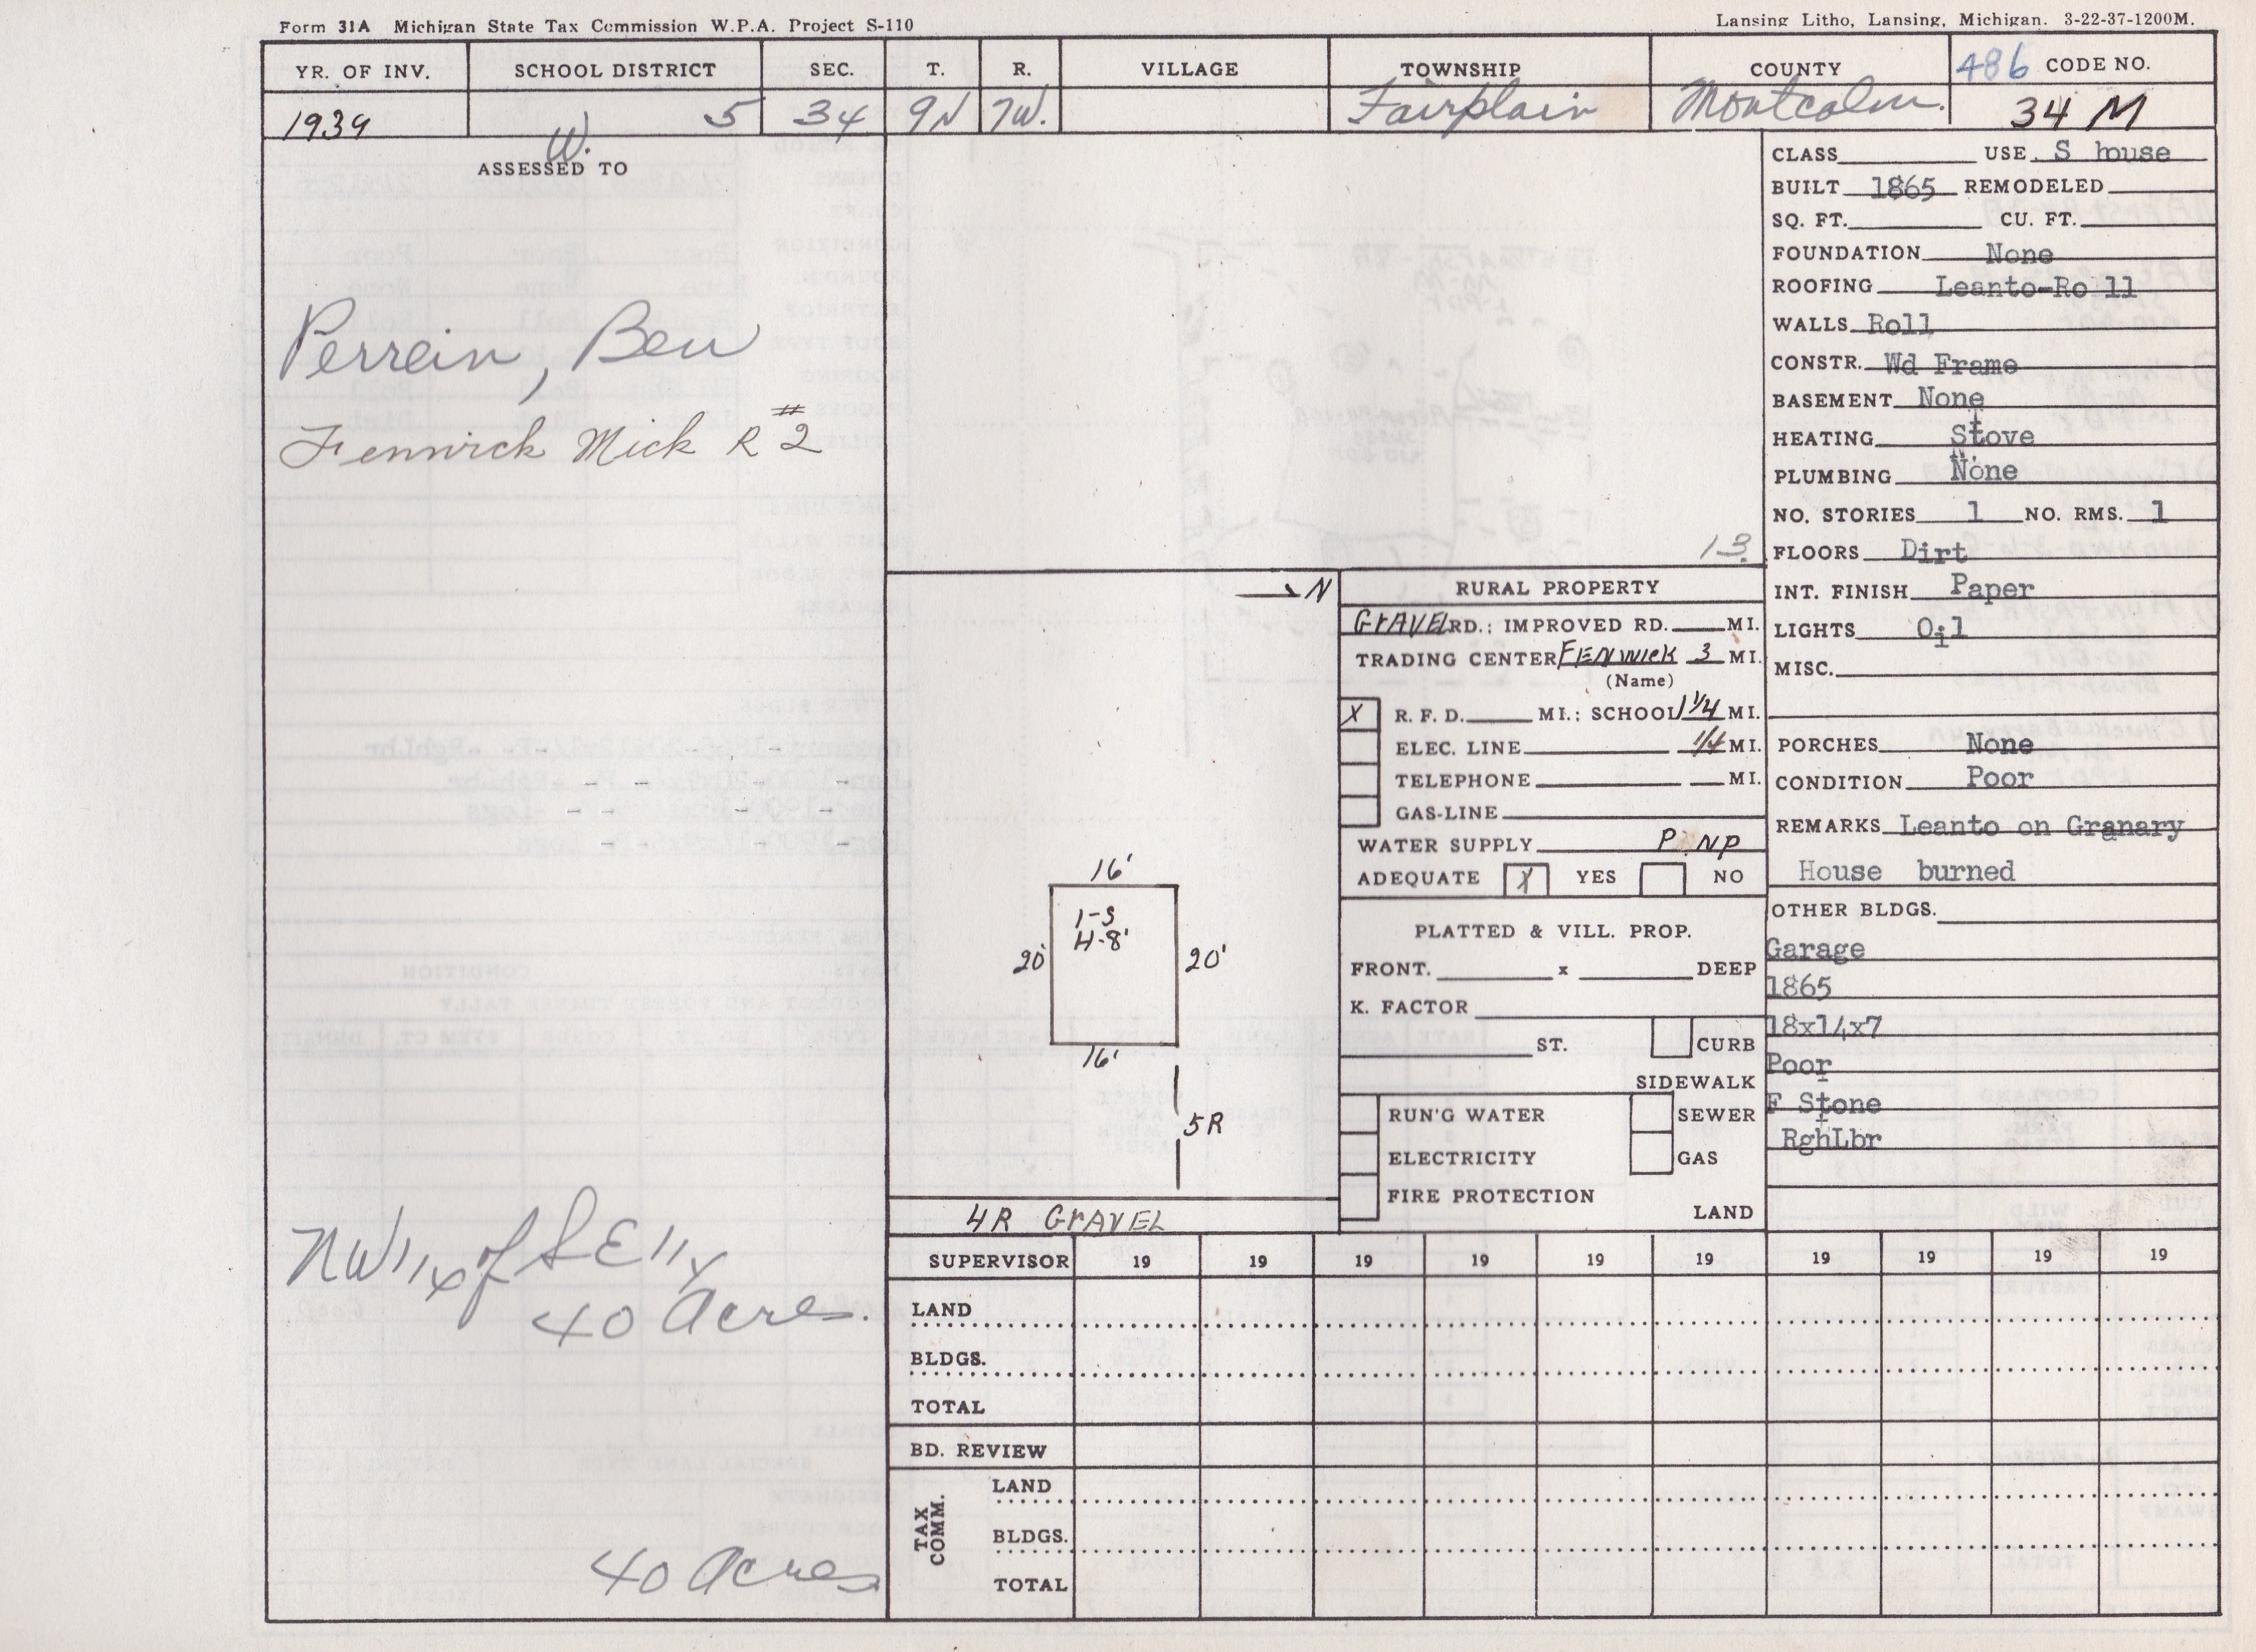 Form 31A Michigan State Tax Commission W.P.A. Project S-110
Lansing Litho, Lansing, Michigan. 3-22-37-1200M.
YR. OF INV. SCHOOL DISTRICT SEC. T. R. VILLAGE TOWNSHIP COUNTY 486 CODE NO.
1939 W. 5 34 9N 7W. Fairplain Montcalm. 34 M
ASSESSED TO
Perrein, Ben
Fenwick Mich R #2
NW 1/4 of SE 1/4
40 Acres.
40 Acres
13.
N
16'
1-S
H-8'
20' 20'
16'
5R
4R GrAVEL
RURAL PROPERTY
GrAVEL RD.; IMPROVED RD. MI.
TRADING CENTER FENWICK 3 MI.
(Name)
X R. F. D. MI.; SCHOOL 1 1/4 MI.
ELEC. LINE 1/4 MI.
TELEPHONE MI.
GAS-LINE
WATER SUPPLY P. NP
ADEQUATE X YES NO
PLATTED & VILL. PROP.
FRONT. x DEEP
K. FACTOR
ST. CURB
SIDEWALK
RUN'G WATER SEWER
ELECTRICITY GAS
FIRE PROTECTION
LAND
CLASS USE S house
BUILT 1865 REMODELED
SQ. FT. CU. FT.
FOUNDATION None
ROOFING Leanto-Ro ll
WALLS Roll
CONSTR. Wd Frame
BASEMENT None
HEATING Stove
PLUMBING None
NO. STORIES 1 NO. RMS. 1
FLOORS Dirt
INT. FINISH Paper
LIGHTS Oil
MISC.
PORCHES None
CONDITION Poor
REMARKS Leanto on Granary
House burned
OTHER BLDGS.
Garage
1865
18x14x7
Poor
F Stone
RghLbr
SUPERVISOR 19 19 19 19 19 19 19 19 19 19
LAND
BLDGS.
TOTAL
BD. REVIEW
TAX COMM.
LAND
BLDGS.
TOTAL